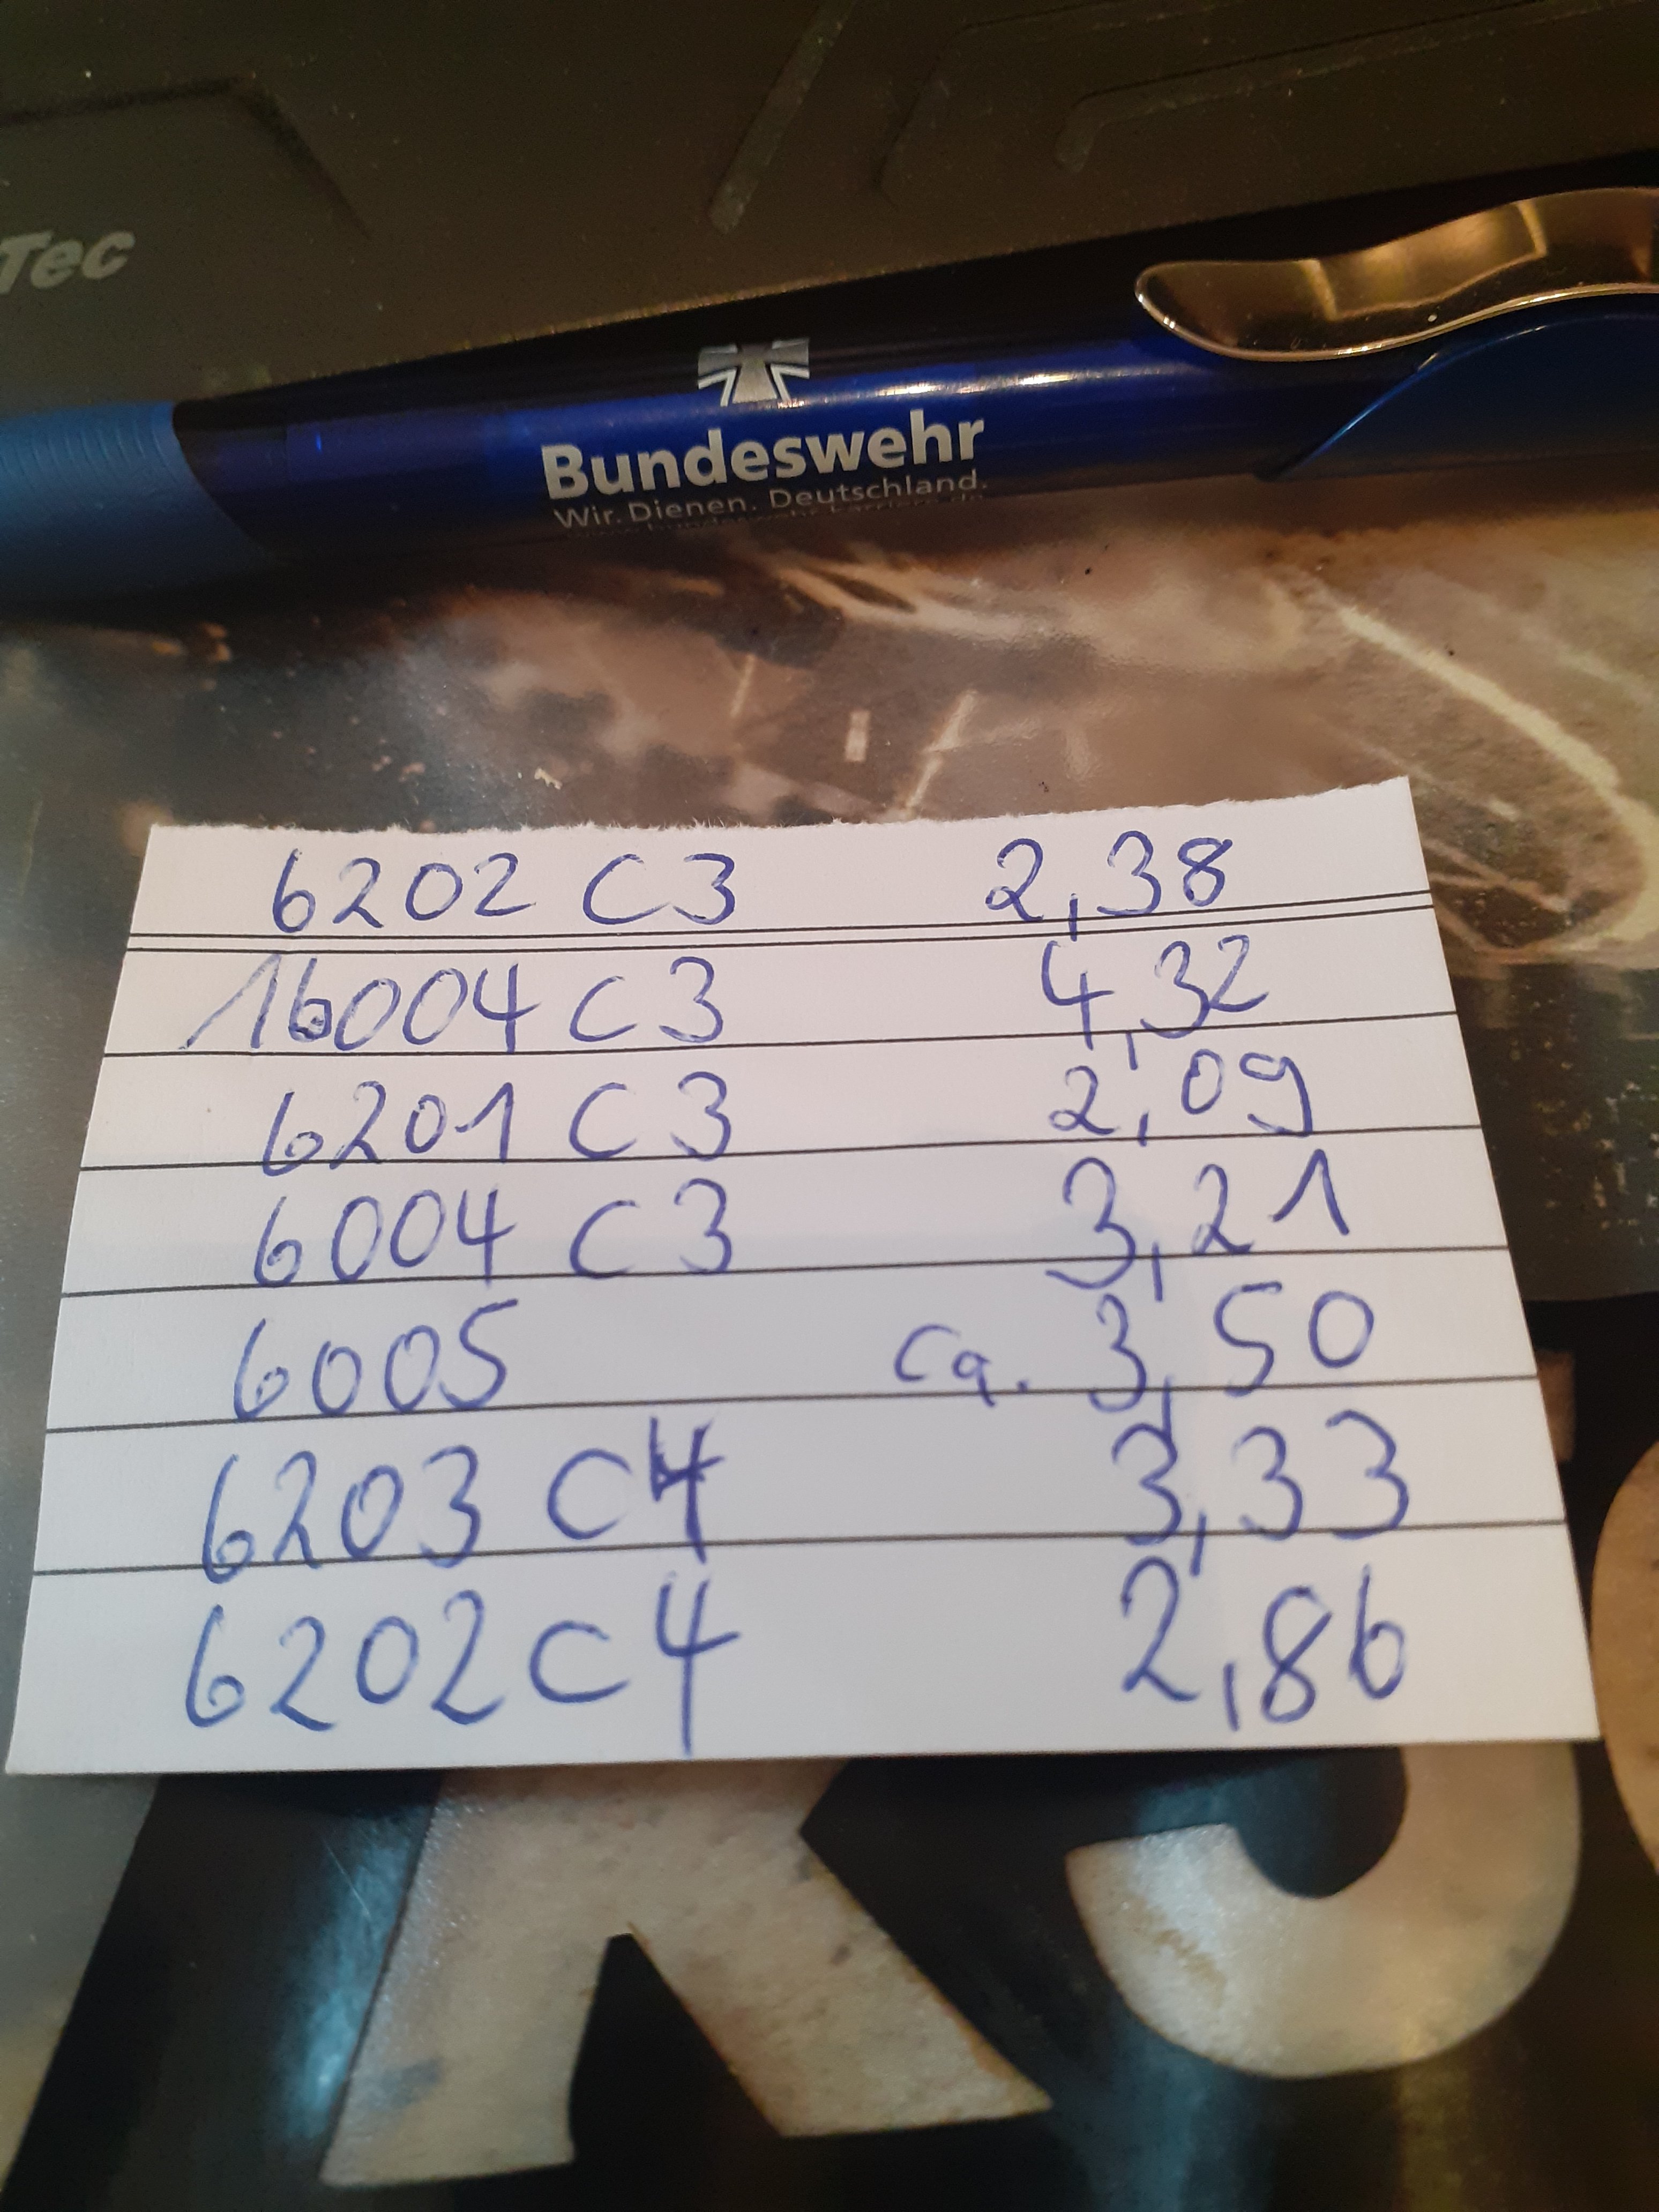 Tec
Bundeswehr
Wir. Dienen. Deutschland.
6202 C3 2,38
16004 C3 4,32
6201 C3 2,09
6004 C3 3,21
6005 ca. 3,50
6203 C4 3,33
6202 C4 2,86